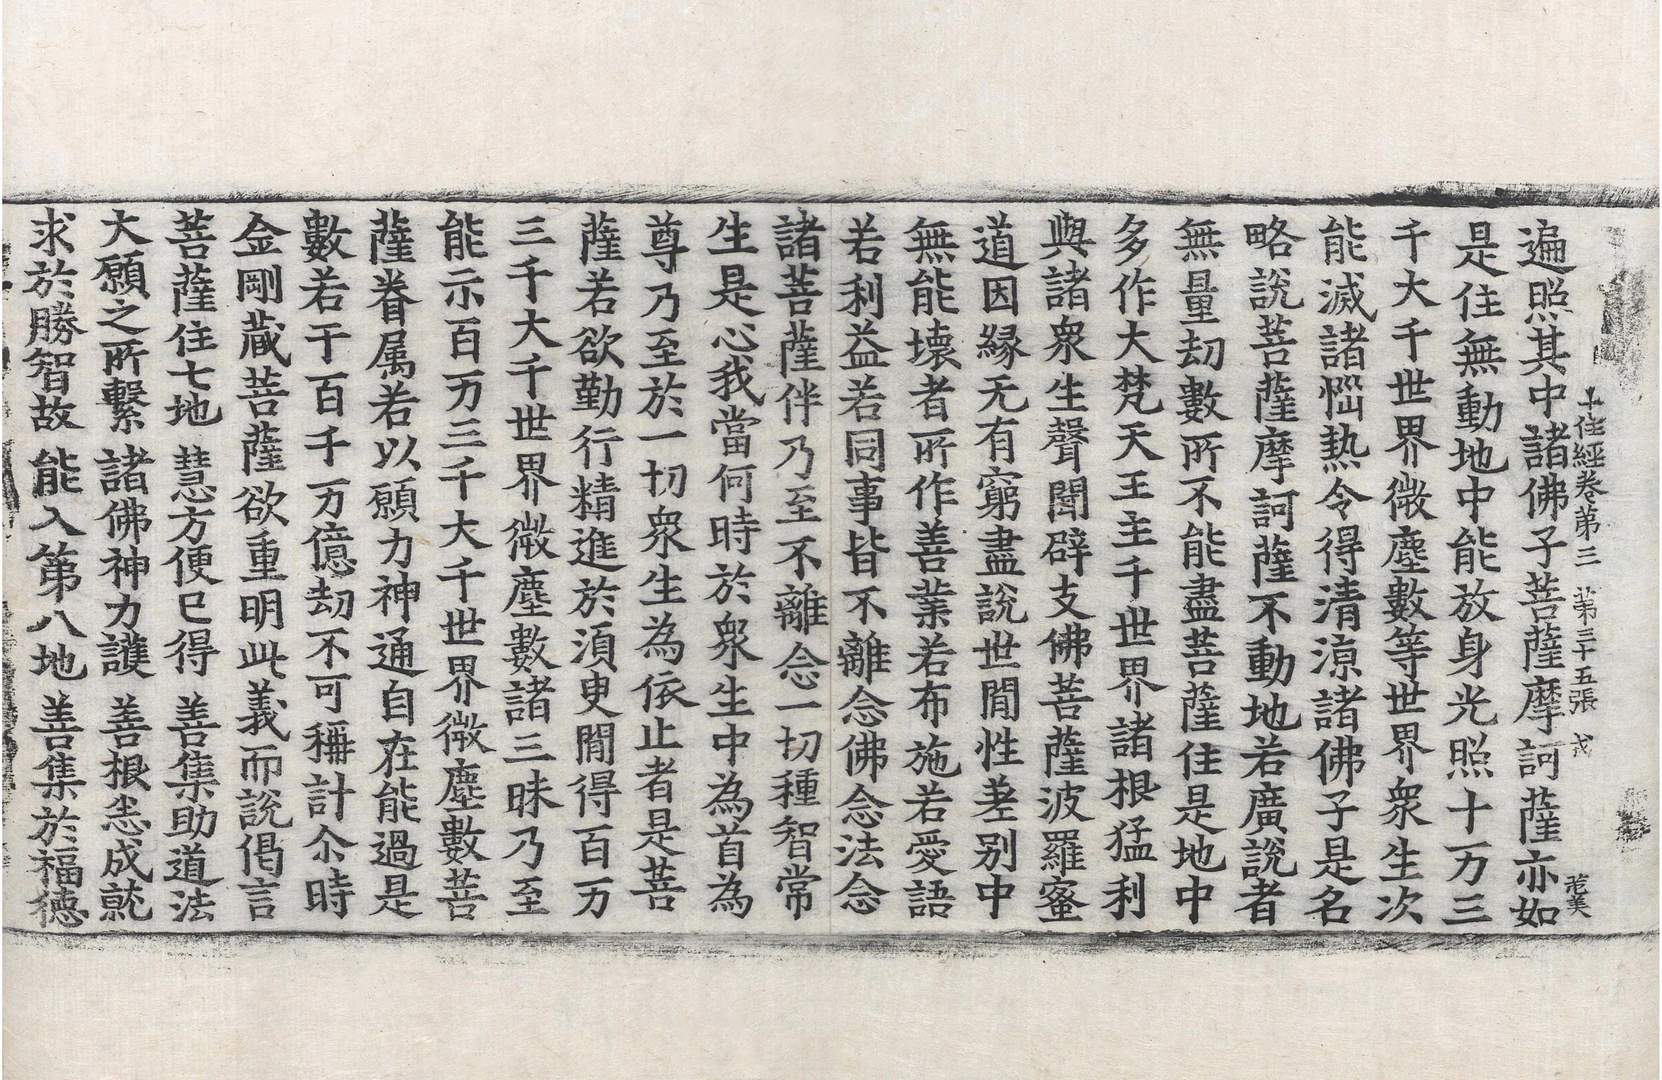 十住經卷第三 第三十五張 戎 范美
遍照其中諸佛子菩薩摩訶薩亦如
是住無動地中能放身光照十万三
千大千世界微塵數等世界衆生次
能滅諸惱熱令得清涼諸佛子是名
略說菩薩摩訶薩不動地若廣說者
無量劫數所不能盡菩薩住是地中
多作大梵天王主千世界諸根猛利
與諸衆生聲聞辟支佛菩薩波羅蜜
道因緣无有窮盡說世閒性差别中
無能壞者所作善業若布施若愛語
若利益若同事皆不離念佛念法念
諸菩薩伴乃至不離念一切種智常
生是心我當何時於衆生中為首為
尊乃至於一切衆生為依止者是菩
薩若欲勤行精進於須臾閒得百万
三千大千世界微塵數諸三昧乃至
能示百万三千大千世界微塵數菩
薩眷属若以願力神通自在能過是
數若干百千万億劫不可稱計尒時
金剛藏菩薩欲重明此義而說偈言
菩薩住七地 慧方便已得 善集助道法
大願之所繫 諸佛神力護 善根悉成就
求於勝智故 能入第八地 善集於福德